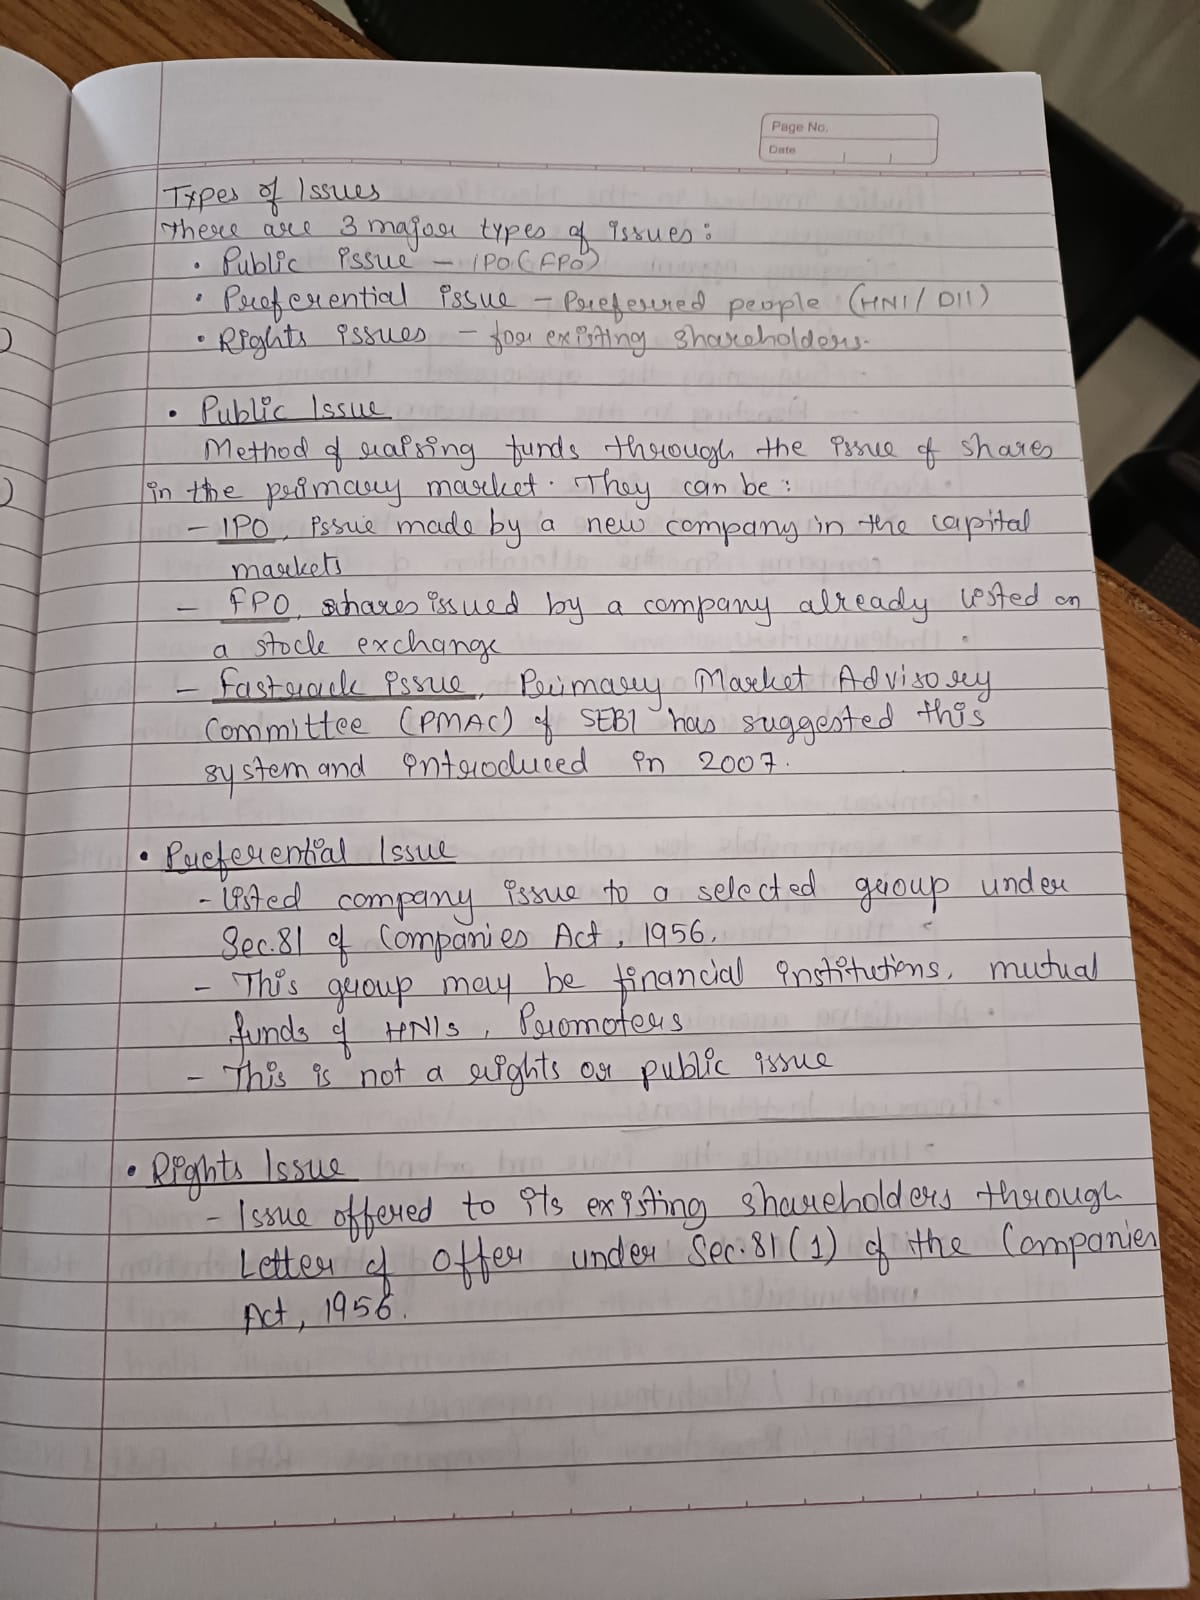 Page No.
Date
Types of Issues
There are 3 major types of issues:
• Public issue – IPO (FPO)
• Preferential issue – Preferred people (HNI / DII)
• Rights issues – for existing shareholders.
• Public Issue
Method of raising funds through the issue of shares
in the primary market. They can be:
– IPO, issue made by a new company in the capital
markets
– FPO, shares issued by a company already listed on
a stock exchange
– Fastrack issue, Primary Market Advisory
Committee (PMAC) of SEBI has suggested this
system and introduced in 2007.
• Preferential Issue
- Listed company issue to a selected group under
Sec. 81 of Companies Act, 1956.
- This group may be financial institutions, mutual
funds of HNIs, Promoters
- This is not a rights or public issue
• Rights Issue
- Issue offered to its existing shareholders through
Letter of offer under Sec. 81 (1) of the Companies
Act, 1956.